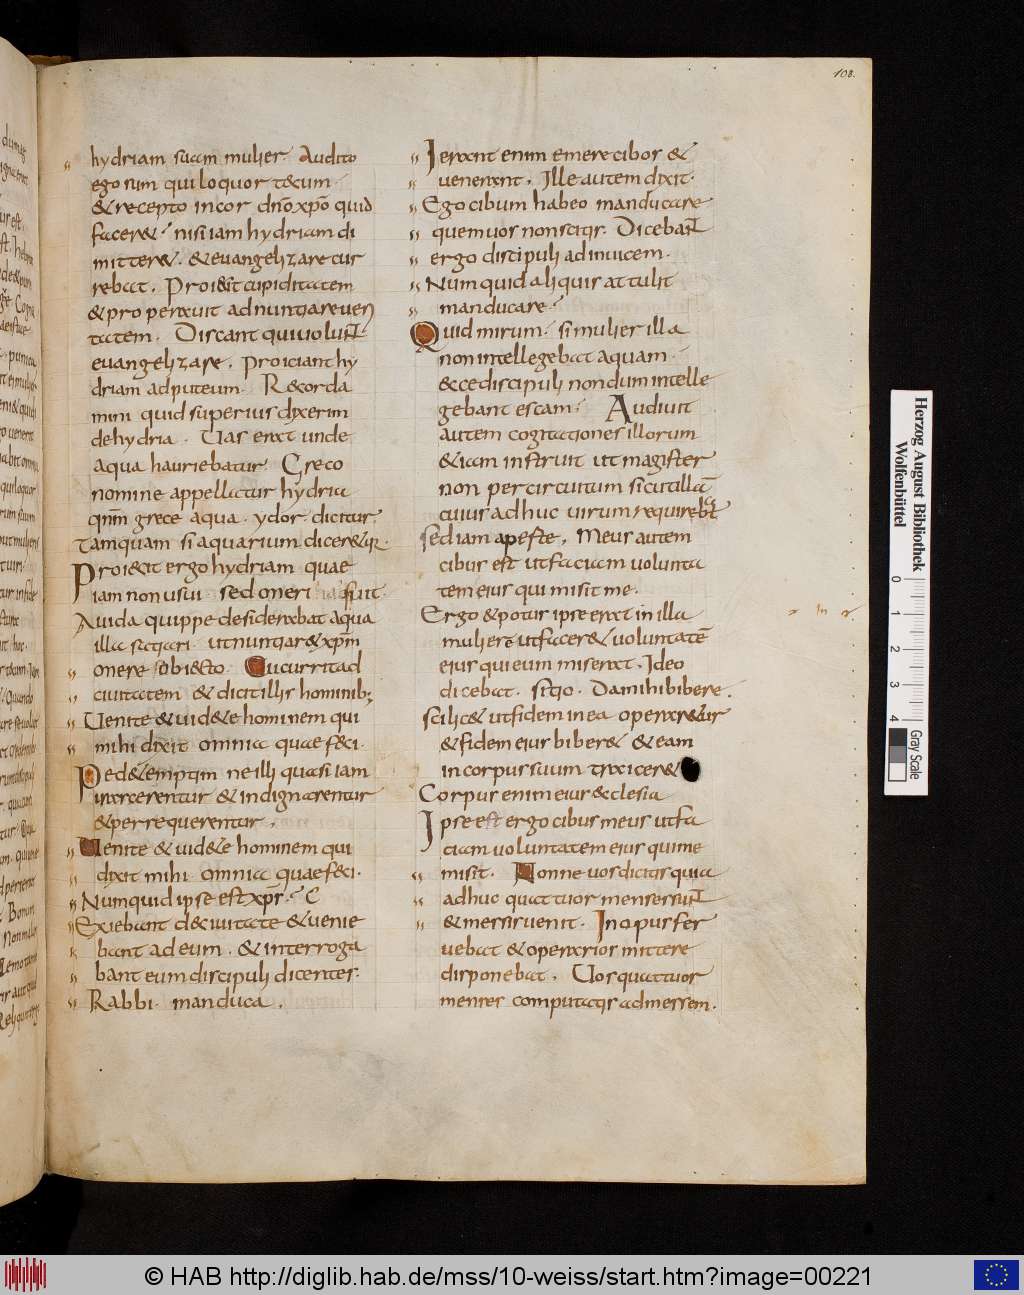 108.
hydriam suam mulier Audito
ego sum qui loquor t&cum·
& recepto in cor dño xpo quid
facer&· nisi iam hydriam di
mitter&· & euangelizare cur
reb&at. Proi&it cupiditatem
& properauit adnuntiare ueri
tatem. Discant qui uolunt
euangelizare. Proiciant hy
driam adputeum. R&corda
mini quid superius dixerim
de hydria. Uas erat unde
aqua hauriebatur. Greco
nomine appellatur hydria
qnm grece aqua· ydor· dicitur·
Tamquam si aquarium dicer&ur·
Proi&it ergo hydriam quae
iam non usui· sed oneri fuit·
Auida quippe desiderabat aqua
illa satiari· ut nuntiar& xpm
onere obiecto. Cucurrit ad
ciuitatem & dicit illis hominib;
Uenite & uid&e hominem qui
mihi dixit omnia quae feci·
Pedetemptim ne illi quasi iam
irascerentur & indignarentur
& persequerentur.
Uenite & uid&e hominem qui
dixit mihi omnia quae feci·
Numquid ipse est xps·
Exiebant de ciuitate & uenie
bant ad eum. & interroga
bant eum discipuli dicentes·
Rabbi· manduca.
Ierant enim emere cibos &
uenerant. Ille autem dixit·
Ego cibum habeo manducare
quem uos non scitis. Dicebant
ergo discipuli ad inuicem.
Numquid aliquis attulit
manducare·
Quid mirum· si mulier illa
non intellegebat aquam·
& ce discipuli nondum intelle
gebant escam· Audiuit
autem cogitationes illorum
& iam instruit ut magister
non per circuitum sicut illā
cuius adhuc uirum requirebat
sed iam aperte. Meus autem
cibus est ut faciam uolunta
tem eius qui misit me.
Ergo & potus ipse erat in illa
muliere ut facer& uoluntatē
eius qui eum miserat. Ideo
dicebat. sitio. Da mihi bibere.
scilic& ut fidem in ea operaretur
& fidem eius biber& & eam
in corpus suum traicer&
Corpus enim eius ecclesia
Ipse est ergo cibus meus ut fa
ciam uoluntatem eius qui me
misit. Nonne uos dicitis quia
adhuc quattuor menses sunt
& messis uenit. In opus fer
uebat & operarios mittere
disponebat. Uos quattuor
menses computatis ad messem.
Herzog August Bibliothek
Wolfenbüttel
0 1 2 3 4
Gray Scale
© HAB http://diglib.hab.de/mss/10-weiss/start.htm?image=00221